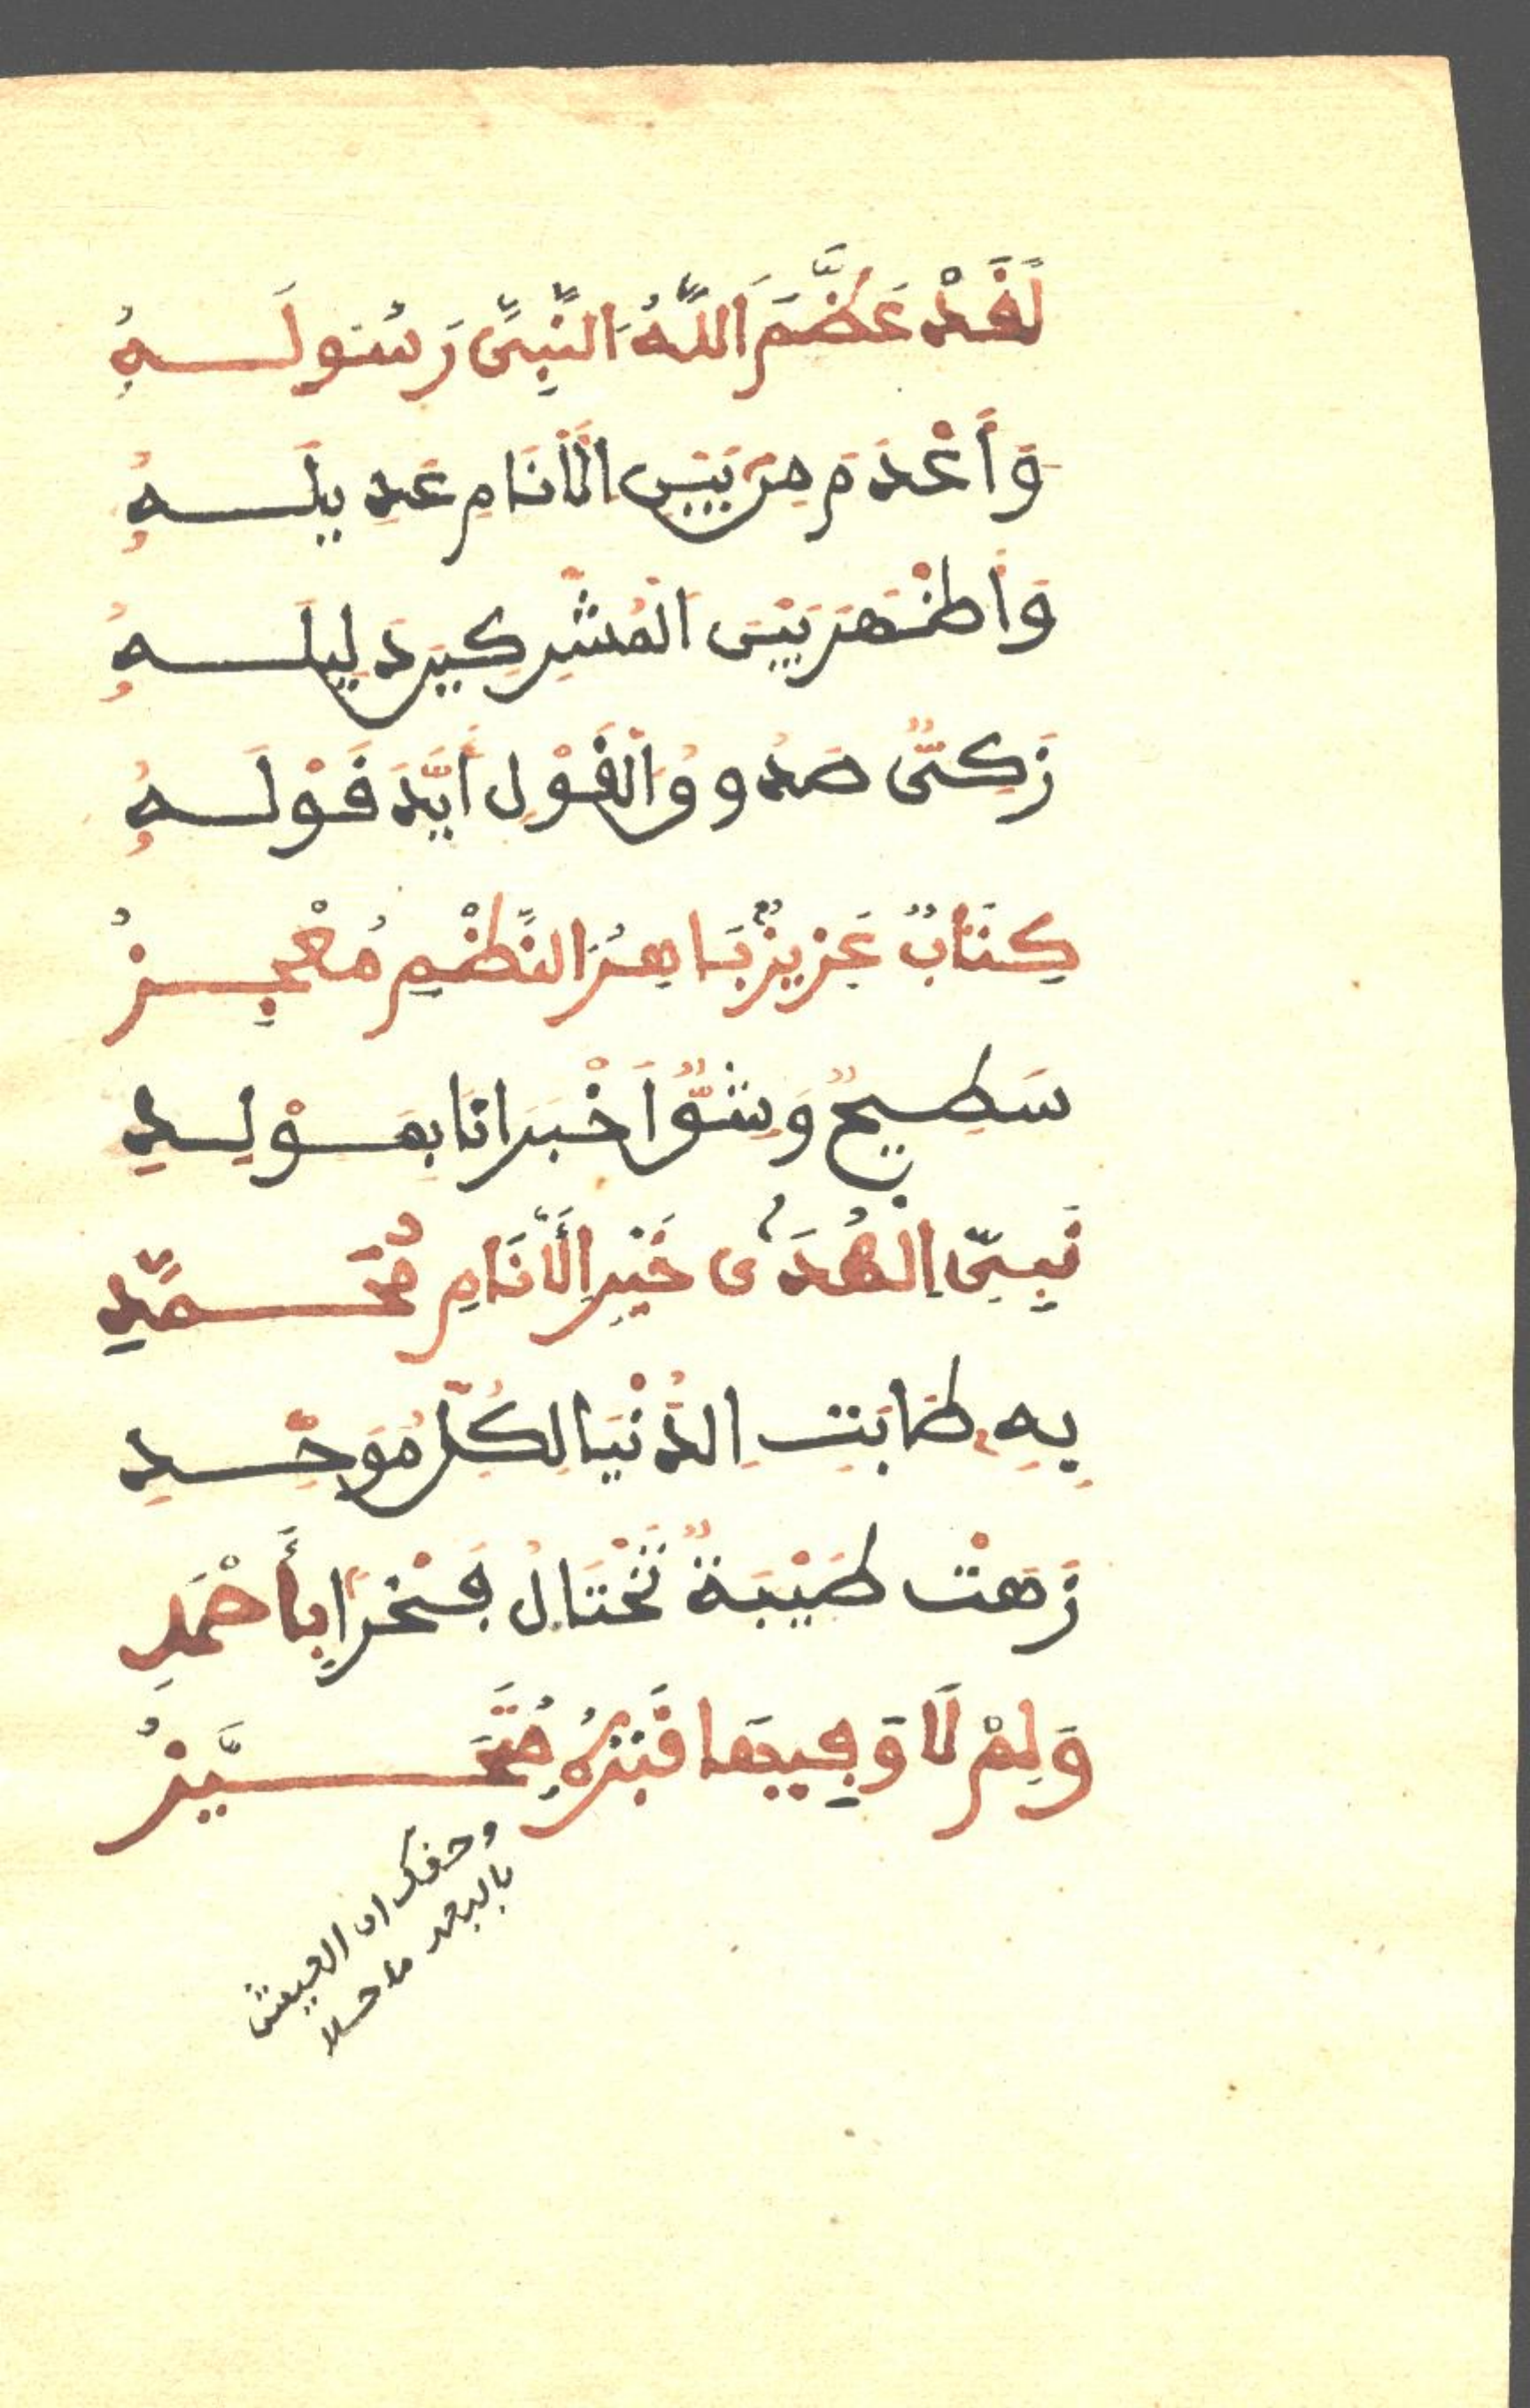 لَقَدْ عَظَّمَ اللَّهُ النَّبِيَّ رَسُولَهُ
وَأَعْدَمَ مِن بَيْنِ الْأَنَامِ عَدِيلَهُ
وَأَظْهَرَ بَيْنَ الْمُشْرِكِينَ دَلِيلَهُ
زَكِيٌّ صَدُوقُ الْقَوْلِ أَيَّدَ قَوْلَهُ
كِتَابٌ عَزِيزٌ بَاهِرُ النَّظْمِ مُعْجِزُ
سَطِيحٌ وَشِقٌّ أَخْبَرَانَا بِمَوْلِدِ
نَبِيِّ الْهُدَى خَيْرِ الْأَنَامِ مُحَمَّدِ
بِهِ طَابَتِ الدُّنْيَا لِكُلِّ مُوَحِّدِ
زَهَتْ طَيْبَةٌ تَخْتَالُ فَخْرًا بِأَحْمَدِ
وَلِمْ لَا وَفِيهَا قَبْرُهُ مُتَحَيَّزُ
وحقك ان العيش
بالبعد ما حلا